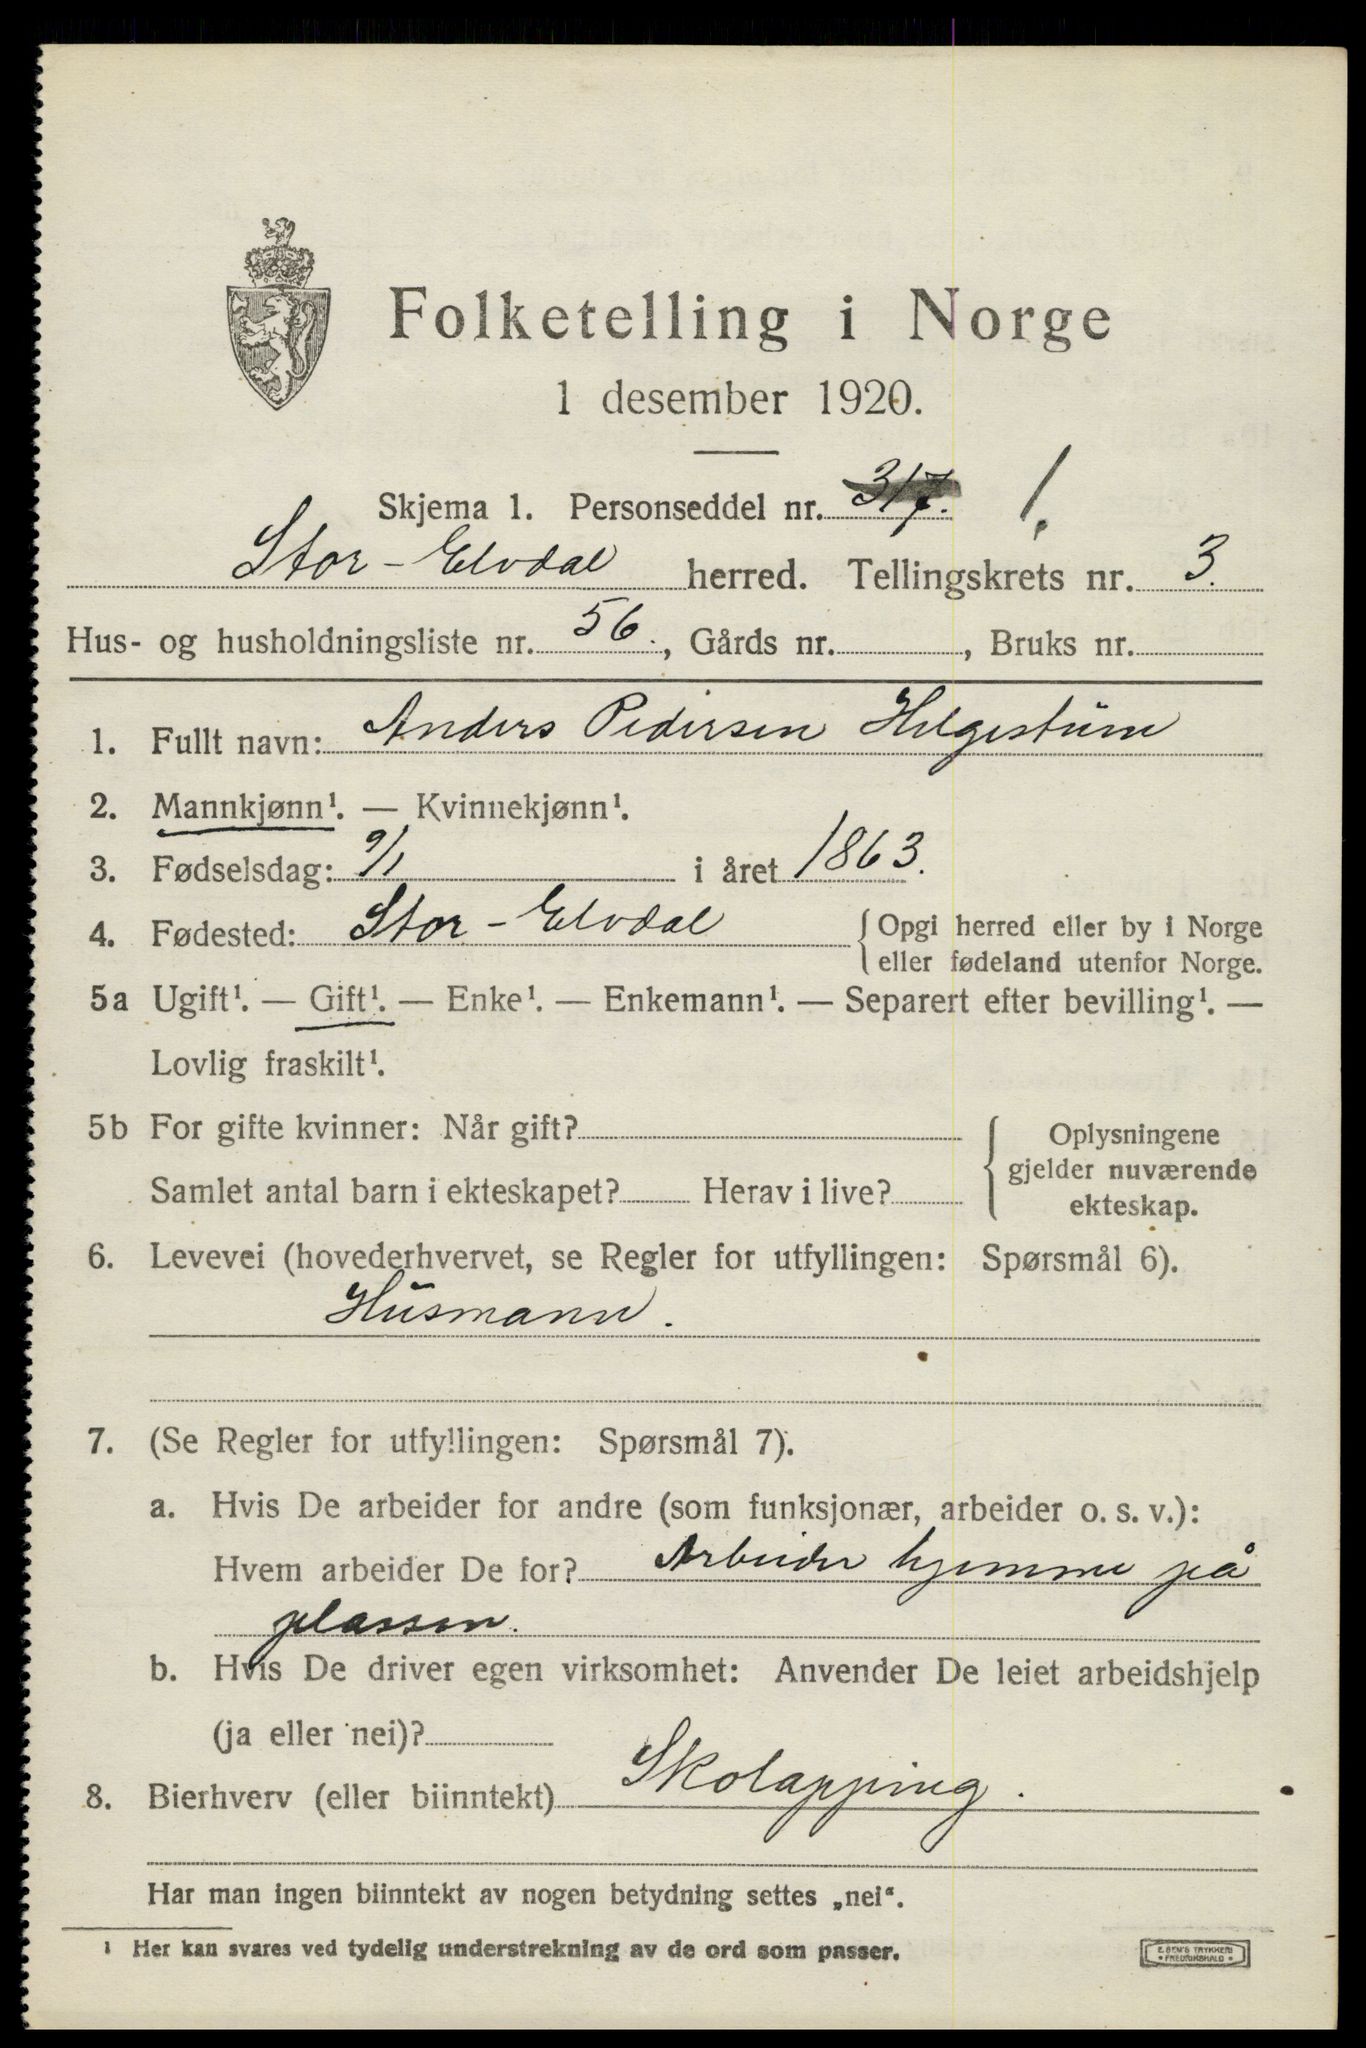 Folketelling i Norge
1 desember 1920.
Skjema 1. Personseddel nr. 317. 1.
Stor-Elvdal herred. Tellingskrets nr. 3.
Hus- og husholdningsliste nr. 56., Gårds nr. , Bruks nr.
1. Fullt navn: Anders Pedersen Helgestum
2. Mannkjønn¹. — Kvinnekjønn¹.
3. Fødselsdag: 9/1 i året 1863.
4. Fødested: Stor-Elvdal { Opgi herred eller by i Norge
eller fødeland utenfor Norge.
5a Ugift¹. — Gift¹. — Enke¹. — Enkemann¹. — Separert efter bevilling¹. —
Lovlig fraskilt¹.
5b For gifte kvinner: Når gift?
Samlet antal barn i ekteskapet? Herav i live?
{ Oplysningene
gjelder nuværende
ekteskap.
6. Levevei (hovederhvervet, se Regler for utfyllingen: Spørsmål 6).
Husmann.
7. (Se Regler for utfyllingen: Spørsmål 7).
a. Hvis De arbeider for andre (som funksjonær, arbeider o. s. v.):
Hvem arbeider De for? Arbeider hjemme på
plassen.
b. Hvis De driver egen virksomhet: Anvender De leiet arbeidshjelp
(ja eller nei)?
8. Bierhverv (eller biinntekt) Skolapping.
Har man ingen biinntekt av nogen betydning settes „nei“.
¹ Her kan svares ved tydelig understrekning av de ord som passer.
E. SEM'S TRYKKERI
• FREDRIKSHALD •